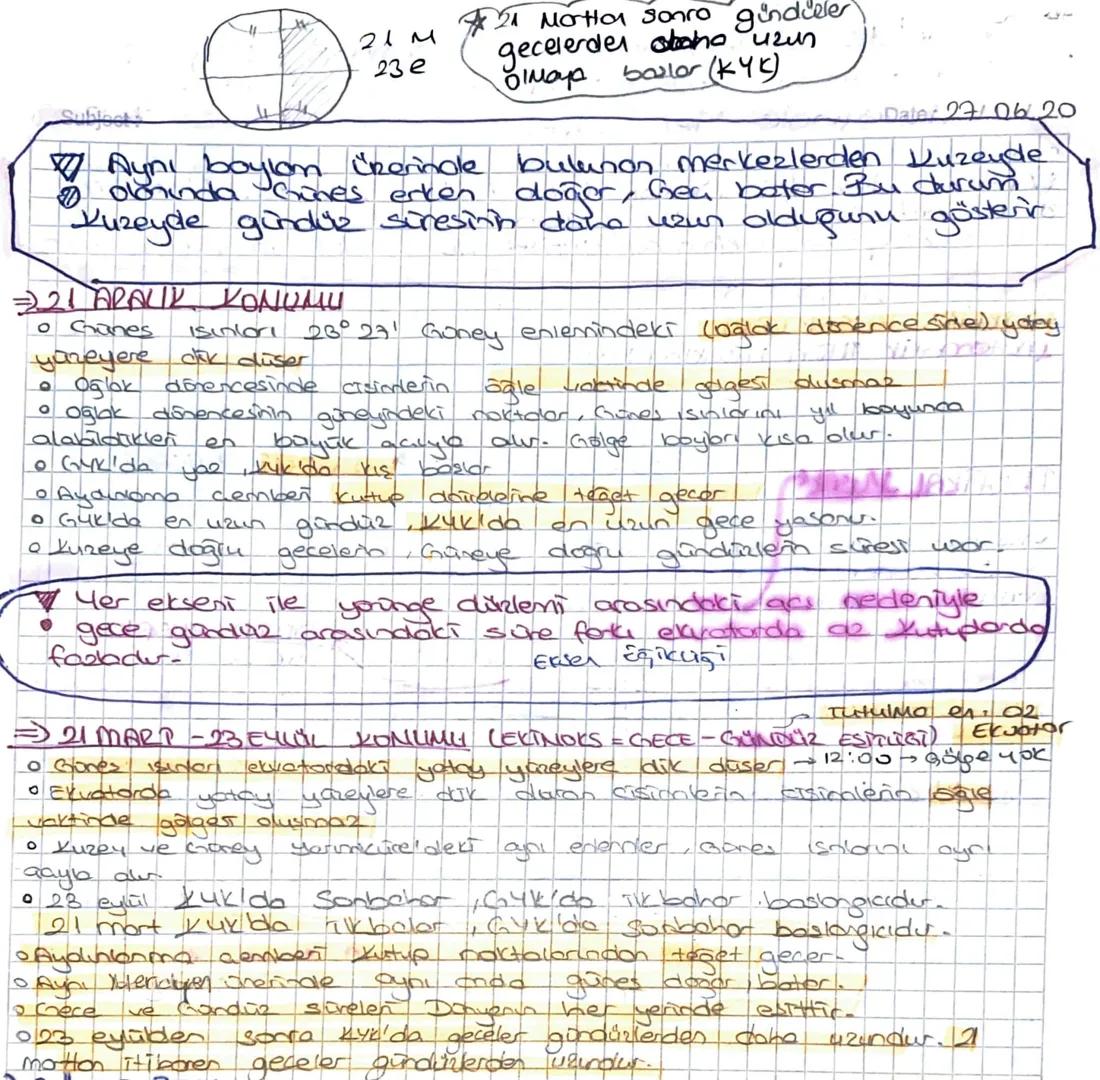 21 M
23 e
☆ 21 Marttan sonra gündüzler
gecelerden daha uzun
olmaya başlar (KYK)
Subject:
Date: 27/06/20
Aynı boylam üzerinde bulunan merkezlerden Kuzeyde
olanında Güneş erken doğar, Geç batar. Bu durum
Kuzeyde gündüz süresinin daha uzun olduğunu gösterir
⇒ 21 ARALIK KONUMU
o Güneş ışınları 23° 27' Güney enlemindeki (oğlak dönenceside) yatay
yüzeyere dik düşer
o Oğlak dönencesinde cisimlerin öğle vaktinde gölgesi oluşmaz
o Oğlak dönencesinin güneyindeki noktalar, Güneş ışınlarını yıl boyunca
alabildikleri en büyük açıyla alır. Gölge boyları kısa olur.
o GYK'da yaz, KYK'da kış başlar
o Aydınlanma çemberi kutup dairelerine teğet geçer
o GYK'da en uzun gündüz, KYK'da en uzun gece yaşanır.
o Kuzeye doğru gecelerin, Güneye doğru gündüzlerin süresi uzar.
Yer ekseni ile yörünge düzlemi arasındaki açı nedeniyle
gece gündüz arasındaki süre farkı ekvatorda az Kutuplarda
fazladır.
Eksen Eğikliği
⇒ 21 MART - 23 EYLÜL KONUMU (EKİNOKS = GECE - GÜNDÜZ EŞİTLİĞİ) Ekvator
o Güneş ışınları ekvatordaki yatay yüzeylere dik düşer → 12:00 → Gölge yok
o Ekvatorda yatay yüzeylere dik duran cisimlerin cisimlerin öğle
vaktinde gölgesi oluşmaz
o Kuzey ve Güney Yarımküre'deki aynı enlemler, Güneş ışınlarını aynı
açıyla alır
o 23 eylül KYK'da Sonbahar, GYK'da ilkbahar başlangıcıdır.
21 mart KYK'da ilkbahar, GYK'da sonbahar başlangıcıdır.
o Aydınlanma çemberi Kutup noktalarından teğet geçer.
o Aynı Meridyen üzerinde aynı anda güneş doğar, batar.
o Gece ve Gündüz süreleri Dünyanın her yerinde eşittir.
o 23 eylülden sonra KYK'da geceler gündüzlerden daha uzundur. 21
marttan itibaren geceler gündüzlerden uzundur.